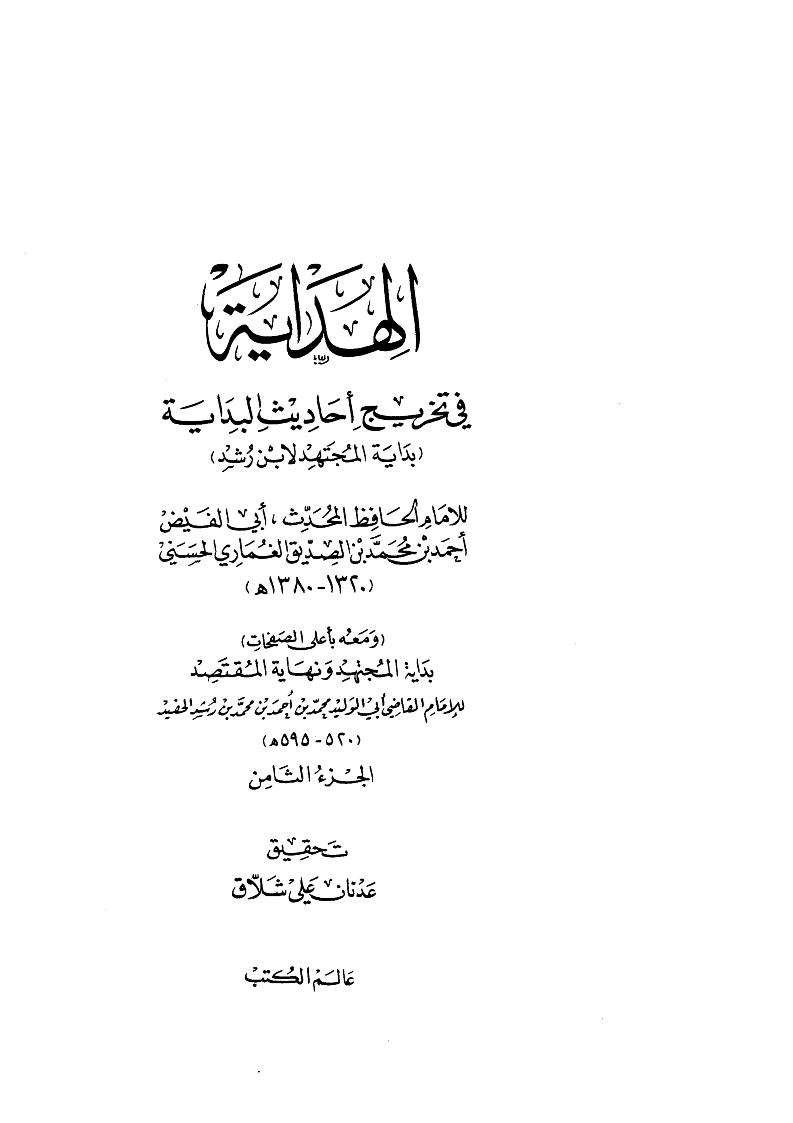 الهداية
في تخريج أحاديث البداية
(بداية المجتهد لابن رشد)
للإمام الحافظ المحدّث، أبي الفيض
أحمد بن محمّد بن الصديق الغماري الحسني
(١٣٢٠-١٣٨٠ه)
(ومعه بأعلى الصفحات)
بداية المجتهد ونهاية المقتصد
للإمام القاضي أبي الوليد محمّد بن أحمد بن محمّد بن رشد الحفيد
(٥٢٠-٥٩٥ه)
الجزء الثامن
تحقيق
عدنان علي شلاّق
عالم الكتب